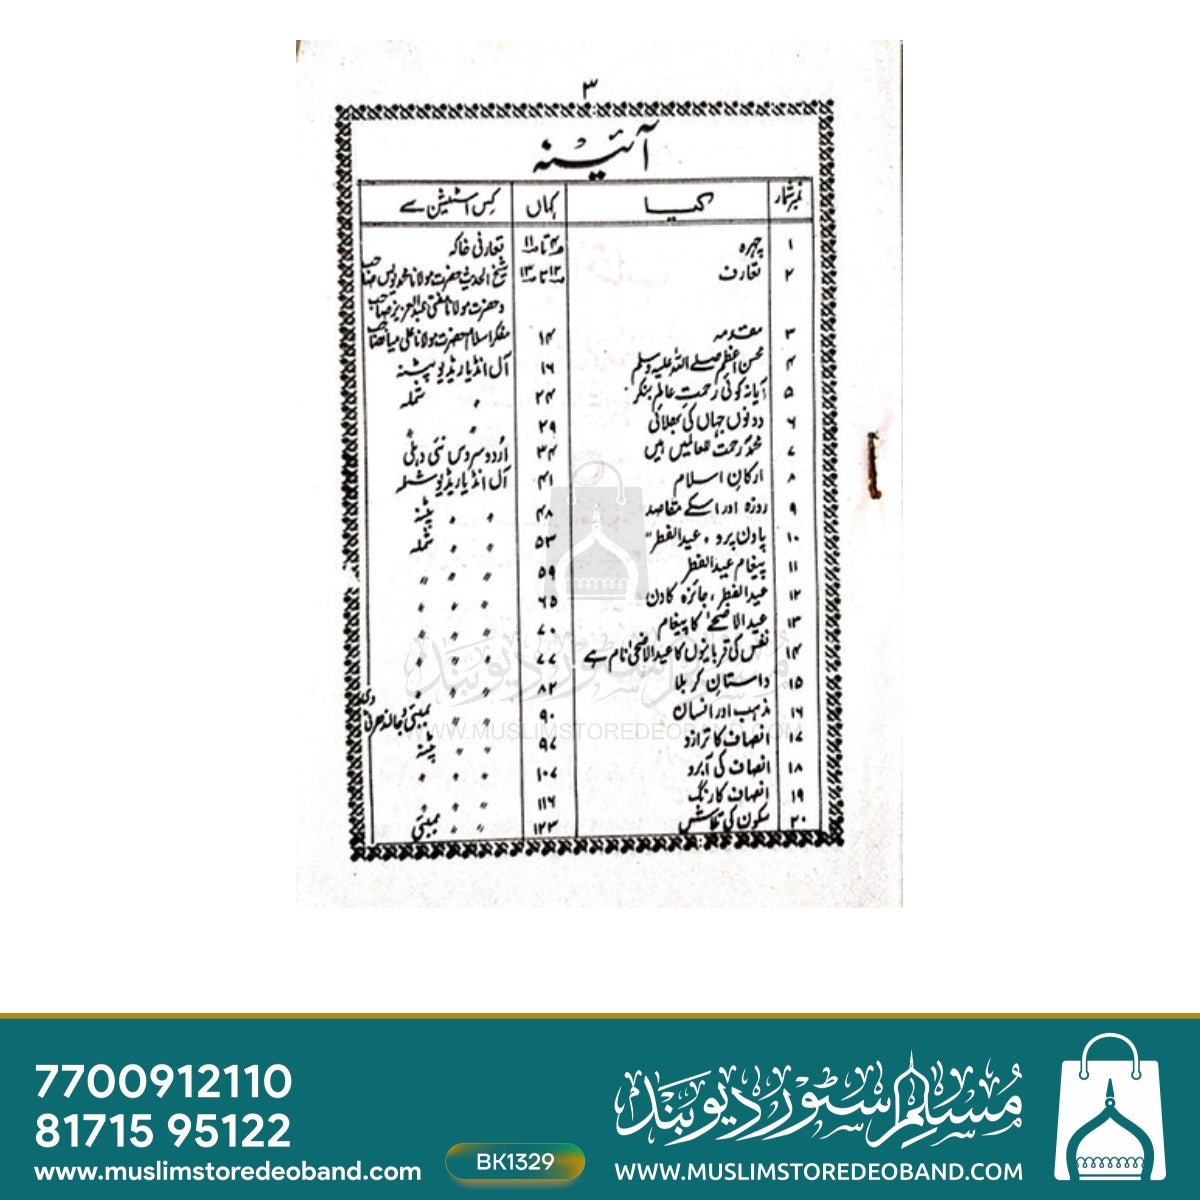 ۳
آئینہ
نمبر شمار کیا کہاں کس اسٹیشن سے
۱ چہرہ ص۴ تا ص۱۱ تعارفی خاکہ
۲ تعارف ص۱۲ تا ص۱۳ شیخ الحدیث حضرت مولانا محمد یونس صاحب
و حضرت مولانا مفتی عبدالعزیز صاحب
۳ مقدمہ ۱۴ مفکر اسلام حضرت مولانا علی میاں صاحب
۴ محسن اعظم صلے اللہ علیہ وسلم ۱۶ آل انڈیا ریڈیو پٹنہ
۵ آیا نہ کوئی رحمت عالم بنکر ۲۴ " شملہ
۶ دونوں جہاں کی بھلائی ۲۹ " "
۷ محمدؐ رحمت للعالمیں ہیں ۳۴ اُردو سروس نئی دہلی
۸ ارکان اسلام ۴۱ آل انڈیا ریڈیو شملہ
۹ روزہ اور اسکے مقاصد ۴۸ " " پٹنہ
۱۰ پاون پرو، عیدالفطر" ۵۳ " " شملہ
۱۱ پیغام عیدالفطر ۵۹ " " "
۱۲ عیدالفطر، جائزہ کا دن ۶۵ " " "
۱۳ عیدالاضحےٰ کا پیغام ۷۰ " " "
۱۴ نفس کی قربانیوں کا عیدالاضحیٰ نام ہے ۷۷ " " "
۱۵ داستان کربلا ۸۲ " " "
۱۶ مذہب اور انسان ۹۰ " بمبئی و جالندھر
۱۷ انصاف کا ترازو ۹۷ " " پٹنہ
۱۸ انصاف کی آبرو ۱۰۷ " " "
۱۹ انصاف کا رنگ ۱۱۶ " " "
۲۰ سکون کی تلاش ۱۲۳ " " بمبئی
مسلم سٹور دیوبند
WWW.MUSLIMSTOREDEOBAND.COM
7700912110
81715 95122
www.muslimstoredeoband.com
BK1329
مسلم سٹور دیوبند
WWW.MUSLIMSTOREDEOBAND.COM